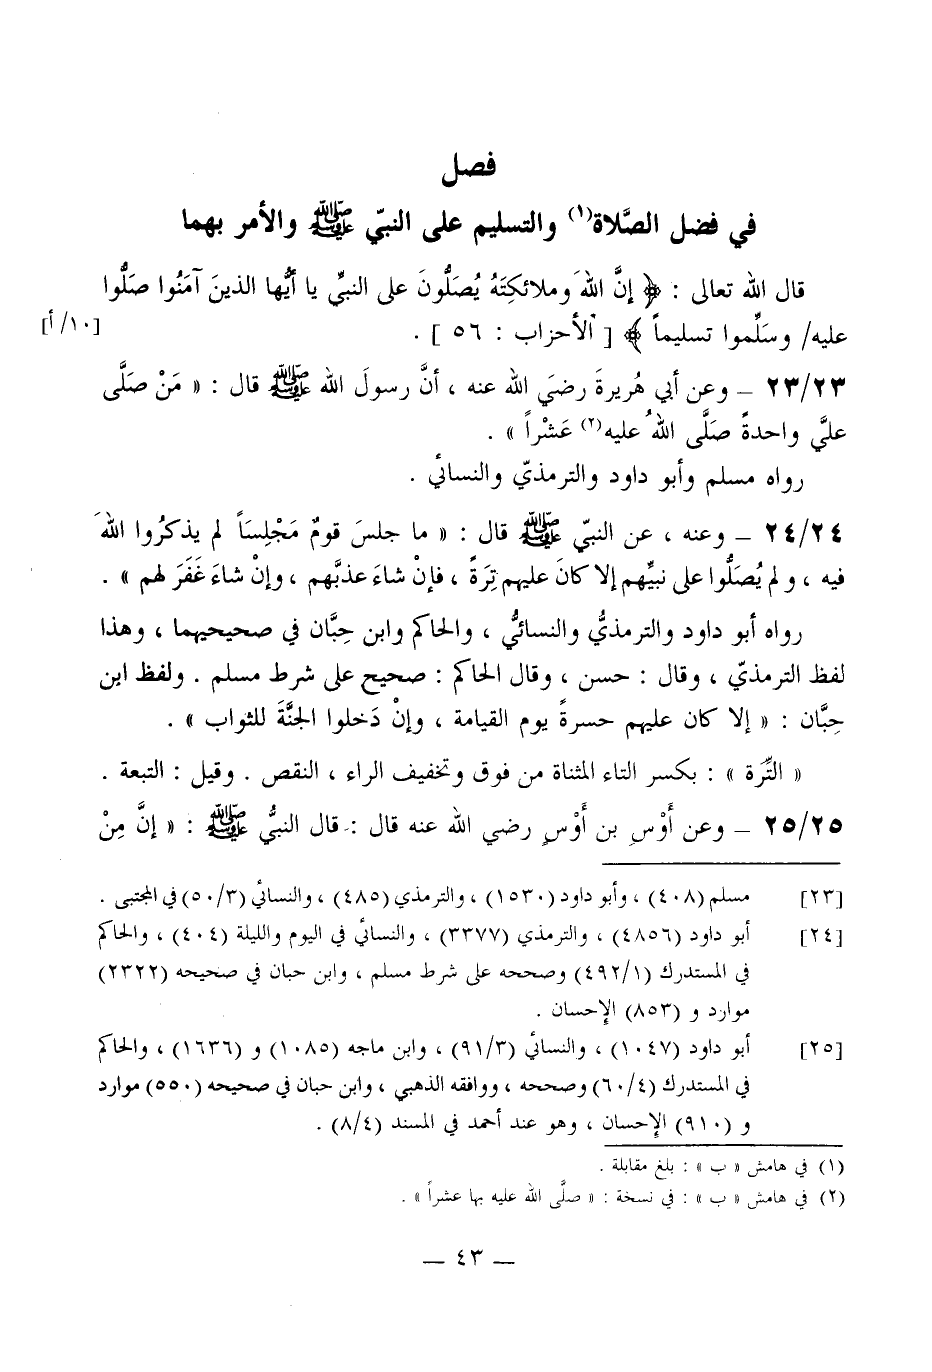 فصل
في فضل الصَّلاة(١) والتسليم على النبيّ ﷺ والأمر بهما
قال الله تعالى : ﴿ إنَّ اللهَ وملائكِتَهُ يُصَلُّونَ على النبيِّ يا أيُّها الذينَ آمَنُوا صَلُّوا
عليه/ وسَلِّموا تسليماً ﴾ [ الأحزاب : ٥٦ ] . [١٠/أ]
٢٣/٢٣ ــ وعن أبي هُريرةَ رضيَ الله عنه ، أنَّ رسولَ الله ﷺ قال : « مَنْ صَلَّى
عليَّ واحدةً صَلَّى اللهُ عليه(٢) عَشْراً » .
رواه مسلم وأبو داود والترمذيّ والنسائي .
٢٤/٢٤ ــ وعنه ، عن النبيّ ﷺ قال : « ما جلسَ قومٌ مَجْلِسَاً لم يذكرُوا اللهَ
فيه ، ولم يُصَلُّوا على نبيِّهم إلا كانَ عليهم تِرَةً ، فإنْ شاءَ عذبَّهم ، وإنْ شاءَ غَفَرَ لهم » .
رواه أبو داود والترمذيُّ والنسائيُّ ، والحاكم وابن حِبَّان في صحيحيهما ، وهذا
لفظ الترمذيّ ، وقال : حسن ، وقال الحاكم : صحيح على شرط مسلم . ولفظ ابن
حِبَّان : « إلا كان عليهم حسرةً يوم القيامة ، وإنْ دَخلوا الجنَّةَ للثواب » .
« التِّرَة » : بكسر التاء المثناة من فوق وتخفيف الراء ، النقص . وقيل : التبعة .
٢٥/٢٥ ــ وعن أَوْسِ بن أَوْسٍ رضي الله عنه قال : قال النبيُّ ﷺ : « إنَّ مِنْ
[٢٣] مسلم (٤٠٨) ، وأبو داود (١٥٣٠) ، والترمذي (٤٨٥) ، والنسائي (٥٠/٣) في المجتبى .
[٢٤] أبو داود (٤٨٥٦) ، والترمذي (٣٣٧٧) ، والنسائي في اليوم والليلة (٤٠٤) ، والحاكم
في المستدرك (٤٩٢/١) وصححه على شرط مسلم ، وابن حبان في صحيحه (٢٣٢٢)
موارد و (٨٥٣) الإحسان .
[٢٥] أبو داود (١٠٤٧) ، والنسائي (٩١/٣) ، وابن ماجه (١٠٨٥) و (١٦٣٦) ، والحاكم
في المستدرك (٦٠/٤) وصححه ، ووافقه الذهبي ، وابن حبان في صحيحه (٥٥٠) موارد
و (٩١٠) الإحسان ، وهو عند أحمد في المسند (٨/٤) .
(١) في هامش « ب » : بلغ مقابلة .
(٢) في هامش « ب » : في نسخة : « صلَّى الله عليه بها عشراً » .
ــ ٤٣ ــ